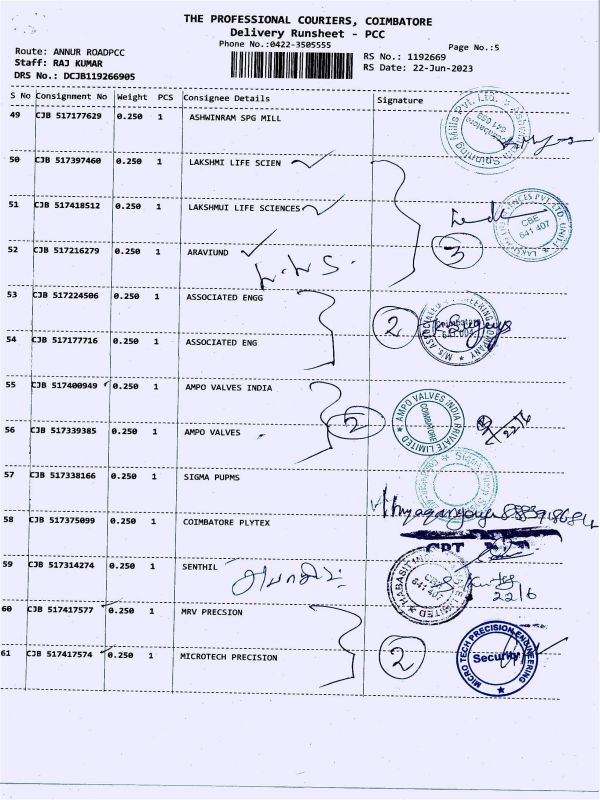 THE PROFESSIONAL COURIERS, COIMBATORE
Delivery Runsheet - PCC
Phone No.:0422-3505555
Page No.:5
Route: ANNUR ROADPCC
Staff: RAJ KUMAR
DRS No.: DCJB119266905
RS No.: 1192669
RS Date: 22-Jun-2023
S No Consignment No Weight PCS Consignee Details Signature
49 CJB 517177629 0.250 1 ASHWINRAM SPG MILL
50 CJB 517397460 0.250 1 LAKSHMI LIFE SCIEN
51 CJB 517418512 0.250 1 LAKSHMUI LIFE SCIENCES
CBE
641 407
52 CJB 517216279 0.250 1 ARAVIUND
3
53 CJB 517224506 0.250 1 ASSOCIATED ENGG
2
M/S. ASSOCIATED ENGINEERING COMPANY
54 CJB 517177716 0.250 1 ASSOCIATED ENG
55 CJB 517400949 0.250 1 AMPO VALVES INDIA
2
AMPO VALVES INDIA PRIVATE LIMITED
COIMBATORE
22/6
56 CJB 517339385 0.250 1 AMPO VALVES
57 CJB 517338166 0.250 1 SIGMA PUPMS
58 CJB 517375099 0.250 1 COIMBATORE PLYTEX
59 CJB 517314274 0.250 1 SENTHIL
641 407
22/6
60 CJB 517417577 0.250 1 MRV PRECSION
61 CJB 517417574 0.250 1 MICROTECH PRECISION
2
MICRO TECH PRECISION ENGINEERING
Security